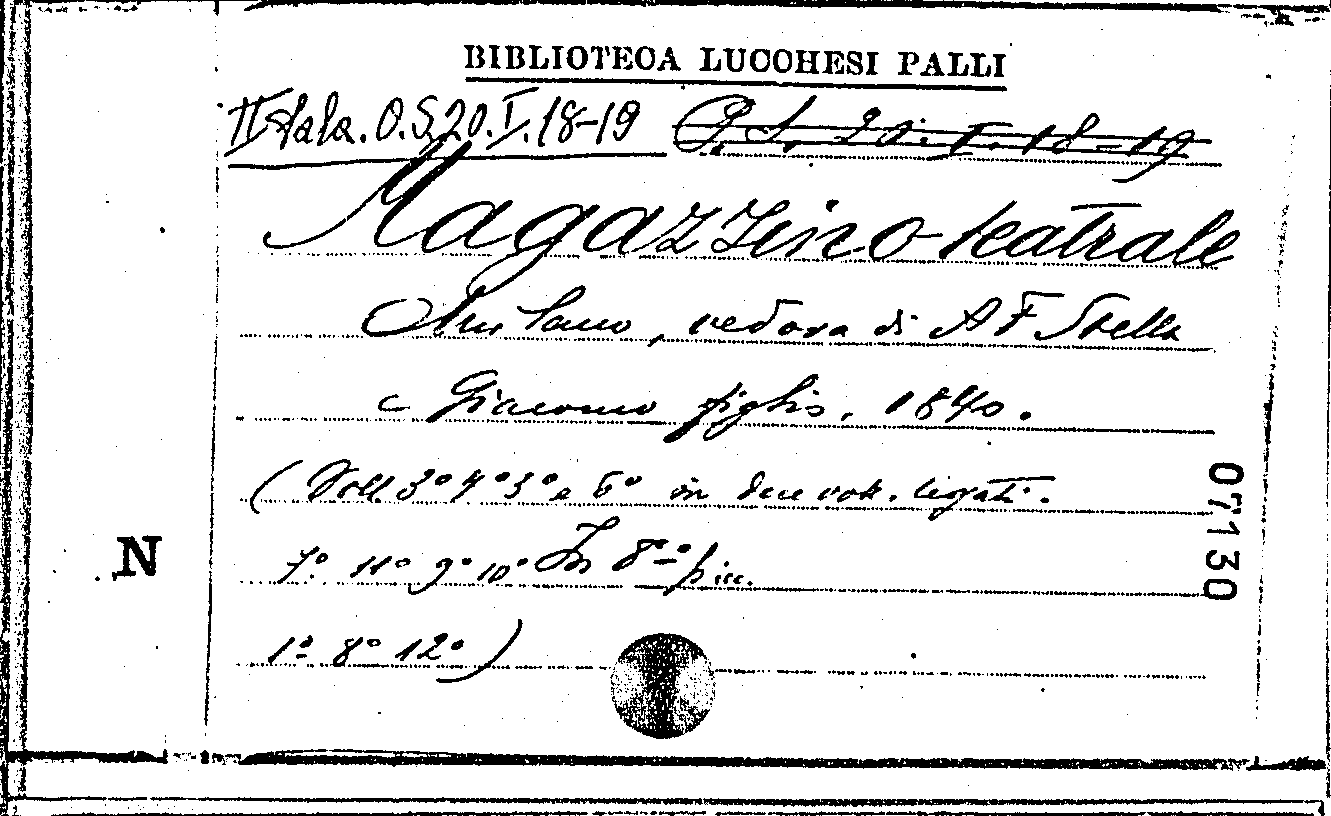 BIBLIOTECA LUCCHESI PALLI
II Sala. O.S.20.I.18-19 P.S. 20.I.18-19
Magazzino teatrale
Milano, vedova di A F Stella
e Giacomo figlio, 1840.
(Voll 3º 4º 5º e 6º in due voll. legati.
7º 11º 9º 10º In 8º picc.
1º 8º 12º)
N
07130